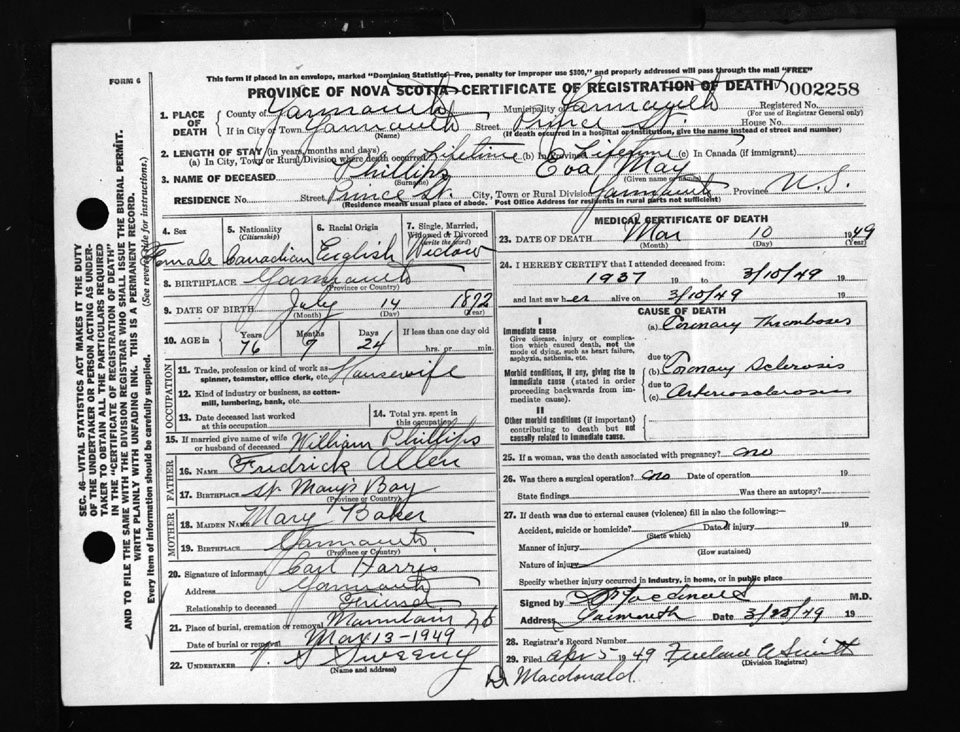 FORM 6
This form if placed in an envelope, marked "Dominion Statistics-Free, penalty for improper use $300," and properly addressed will pass through the mail "FREE"
PROVINCE OF NOVA SCOTIA-CERTIFICATE OF REGISTRATION OF DEATH 002258
1. PLACE OF DEATH County of Yarmouth Municipality of Yarmouth Registered No.
(For use of Registrar General only)
If in City or Town Yarmouth Street Prince St. House No.
(Name) (If death occurred in a hospital or institution, give the name instead of street and number)
2. LENGTH OF STAY (in years, months and days)
(a) In City, Town or Rural Division where death occurred Lifetime (b) In Province Lifetime (c) In Canada (if immigrant)
3. NAME OF DECEASED Phillips Eva May
(Surname) (Given name or names)
RESIDENCE No. Street Prince St. City, Town or Rural Division Yarmouth Province N.S.
(Residence means usual place of abode. Post Office Address for residents in rural parts not sufficient)
4. Sex 5. Nationality (Citizenship) 6. Racial Origin 7. Single, Married, Widowed or Divorced (write the word)
Female Canadian English Widow
8. BIRTHPLACE Yarmouth
(Province or Country)
9. DATE OF BIRTH July 14 1872
(Month) (Day) (Year)
10. AGE in Years Months Days If less than one day
76 24 hrs. or min.
OCCUPATION
11. Trade, profession or kind of work as spinner, teamster, office clerk, etc. Housewife
12. Kind of industry or business, as cotton-mill, lumbering, bank, etc.
13. Date deceased last worked at this occupation
14. Total yrs. spent in this occupation
15. If married give name of wife or husband of deceased William Phillips
FATHER
16. NAME Fredrick Allen
17. BIRTHPLACE St. Mary's Bay
(Province or Country)
MOTHER
18. MAIDEN NAME Mary Baker
19. BIRTHPLACE Yarmouth
(Province or Country)
20. Signature of informant Carl Harris
Address Yarmouth
Relationship to deceased Friend
21. Place of burial, cremation or removal Mountain
Date of burial or removal Mar 13-1949
22. UNDERTAKER V. S. Sweeny
(Name and address)
MEDICAL CERTIFICATE OF DEATH
23. DATE OF DEATH Mar 10 1949
(Month) (Day) (Year)
24. I HEREBY CERTIFY that I attended deceased from:
1937 19 to 3/10/49 19
and last saw her alive on 3/10/49 19
CAUSE OF DEATH
I
Immediate cause
Give disease, injury or complication which caused death, not the mode of dying, such as heart failure, asphyxia, asthenia, etc.
(a) Coronary Thrombosis
due to
Morbid conditions, if any, giving rise to immediate cause (stated in order proceeding backwards from immediate cause).
(b) Coronary Sclerosis
due to
(c) Arteriosclerosis
II
Other morbid conditions (if important) contributing to death but not causally related to immediate cause.
25. If a woman, was the death associated with pregnancy? no
26. Was there a surgical operation? no Date of operation 19
State findings Was there an autopsy?
27. If death was due to external causes (violence) fill in also the following:-
Accident, suicide or homicide? Date of injury 19
(State which)
Manner of injury
(How sustained)
Nature of injury
Specify whether injury occurred in industry, in home, or in public place
Signed by Macdonald M.D.
Address Yarmouth Date 3/23/49 19
28. Registrar's Record Number
29. Filed Apr 5 1949 Freeland A Smith
(Division Registrar)
Dr Macdonald.
SEC. 46-VITAL STATISTICS ACT MAKES IT THE DUTY
OF THE UNDERTAKER OR PERSON ACTING AS UNDER-
TAKER TO OBTAIN ALL THE PARTICULARS REQUIRED
IN THE "CERTIFICATE OF REGISTRATION OF DEATH"
AND TO FILE THE SAME WITH THE DIVISION REGISTRAR WHO SHALL ISSUE THE BURIAL PERMIT.
WRITE PLAINLY WITH UNFADING INK. THIS IS A PERMANENT RECORD.
Every item of information should be carefully supplied. (See reverse side for instructions.)